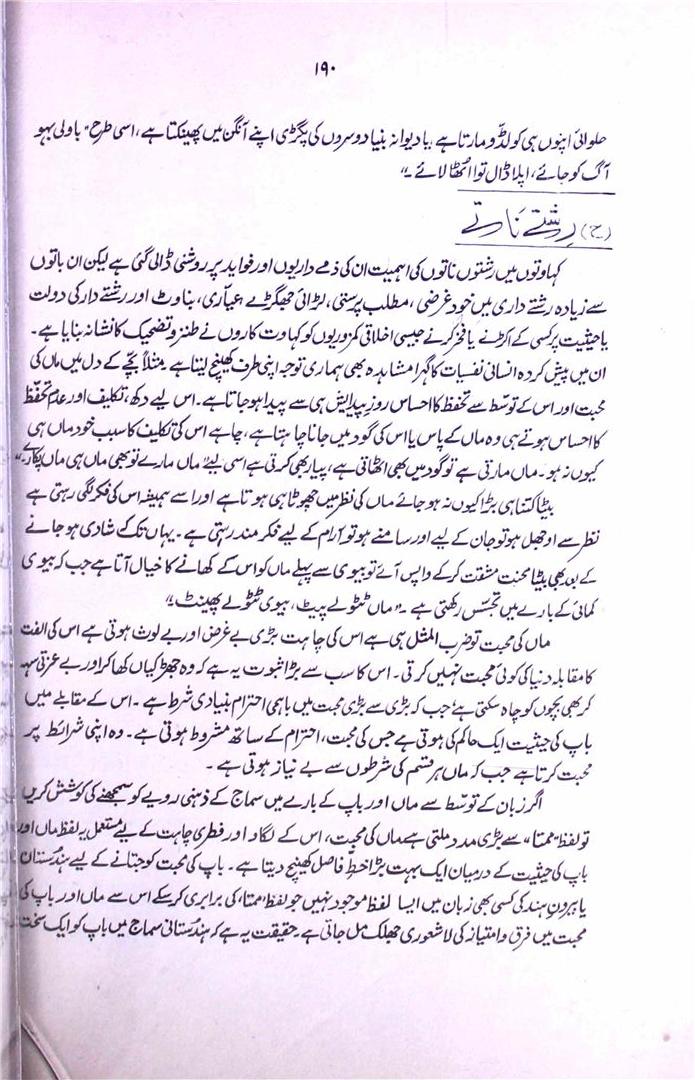 ۱۹۰
حلوائی اپنوں ہی کو لڈّو مارتا ہے، یا دیوانہ بنیا دوسروں کی پگڑی اپنے آنگن میں پھینکتا ہے، اسی طرح "باولی بہو
آگ کو جائے، اپلا ڈال توا اٹھا لائے۔"
(ح) رِشتے نَاتے
کہاوتوں میں رشتوں ناتوں کی اہمیت ان کی ذمے داریوں اور فواید پر روشنی ڈالی گئی ہے لیکن ان باتوں
سے زیادہ رشتے داری میں خود غرضی، مطلب پرستی، لڑائی جھگڑے، عیآری، بناوٹ اور رشتے دار کی دولت
یا حیثیت پر کسی کے اکڑنے یا فخر کرنے جیسی اخلاقی کمزوریوں کو کہاوت کاروں نے طنز و تضحیک کا نشانہ بنایا ہے۔
ان میں پیش کردہ انسانی نفسیات کا گہرا مشاہدہ بھی ہماری توجہ اپنی طرف کھینچ لیتا ہے۔ مثلاً بچّے کے دل میں ماں کی
محبت اور اس کے توسّط سے تحفظ کا احساس روزِ پیدایش ہی سے پیدا ہو جاتا ہے۔ اس لیے دکھ، تکلیف اور عدم تحفّظ
کا احساس ہوتے ہی وہ ماں کے پاس یا اس کی گود میں جانا چاہتا ہے، چاہے اس کی تکلیف کا سبب خود ماں ہی
کیوں نہ ہو۔ ماں مارتی ہے تو گود میں بھی اٹھاتی ہے، پیار بھی کرتی ہے اسی لیے "ماں مارے تو بھی ماں ہی ماں پکارے۔"
بیٹا کتنا ہی بڑا کیوں نہ ہو جائے ماں کی نظر میں چھوٹا ہی ہوتا ہے اور اسے ہمیشہ اس کی فکر لگی رہتی ہے
نظر سے اوجھل ہو تو جان کے لیے اور سامنے ہو تو آرام کے لیے فکر مند رہتی ہے۔ یہاں تک کہ شادی ہو جانے
کے بعد بھی بیٹا محنت مشقت کر کے واپس آئے تو بیوی سے پہلے ماں کو اس کے کھانے کا خیال آتا ہے جب کہ بیوی
کمائی کے بارے میں تجسّس رکھتی ہے۔ "ماں ٹٹولے پیٹ، بیوی ٹٹولے پھینٹ۔"
ماں کی محبت تو ضرب المثل سی ہے اس کی چاہت بڑی بے غرض اور بے لوث ہوتی ہے اس کی الفت
کا مقابلہ دنیا کی کوئی محبت نہیں کرتی۔ اس کا سب سے بڑا ثبوت یہ ہے کہ وہ جھڑکیاں کھا کر اور بے عزتی سہہ
کر بھی بچوں کو چاہ سکتی ہے جب کہ بڑی سے بڑی محبت میں باہمی احترام بنیادی شرط ہے۔ اس کے مقابلے میں
باپ کی حیثیت ایک حاکم کی ہوتی ہے جس کی محبت، احترام کے ساتھ مشروط ہوتی ہے۔ وہ اپنی شرائط پر
محبت کرتا ہے جب کہ ماں ہر قسم کی شرطوں سے بے نیاز ہوتی ہے۔
اگر زبان کے توسّط سے ماں اور باپ کے بارے میں سماج کے ذہنی رویے کو سمجھنے کی کوشش کریں
تو لفظ "ممتا" سے بڑی مدد ملتی ہے ماں کی محبت، اس کے لگاو اور فطری چاہت کے لیے مستعمل یہ لفظ ماں اور
باپ کی حیثیت کے درمیان ایک بہت بڑا خطِ فاصل کھینچ دیتا ہے۔ باپ کی محبت کو جتانے کے لیے ہندستان
یا بیرونِ ہند کی کسی بھی زبان میں ایسا لفظ موجود نہیں جو لفظ 'ممتا' کی برابری کر سکے اس سے ماں اور باپ کی
محبت میں فرق و امتیاز کی لاشعوری جھلک مل جاتی ہے۔ حقیقت یہ ہے کہ ہندستانی سماج میں باپ کو ایک سخت